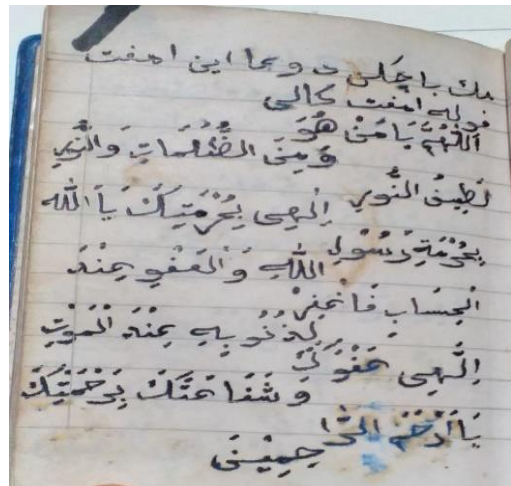 بيك باچكن دوعا اين امفت
فوله امفت كالي
اَللّٰهُمَّ يَا مَنْ هُوَ
وَمِنَ الظُّلُمَاتِ وَالنُّورِ
لَطِيفُ النُّورِ اِلٰهِى بِحُرْمَتِكَ يَا اَلله
بِحُرْمَةِ رَسُوْلِ اللّٰهِ وَالْعَفْوِ عِنْدَ
الْحِسَابِ فَاغْفِرْ
لِذُنُوْبِهِ عِنْدَ الْمَوْتِ
اِلٰهِى عَفْوُكَ
وَشَفَاعَتُكَ بِرَحْمَتِكَ
يَا اَرْحَمَ الرَّا حِمِيْنَ